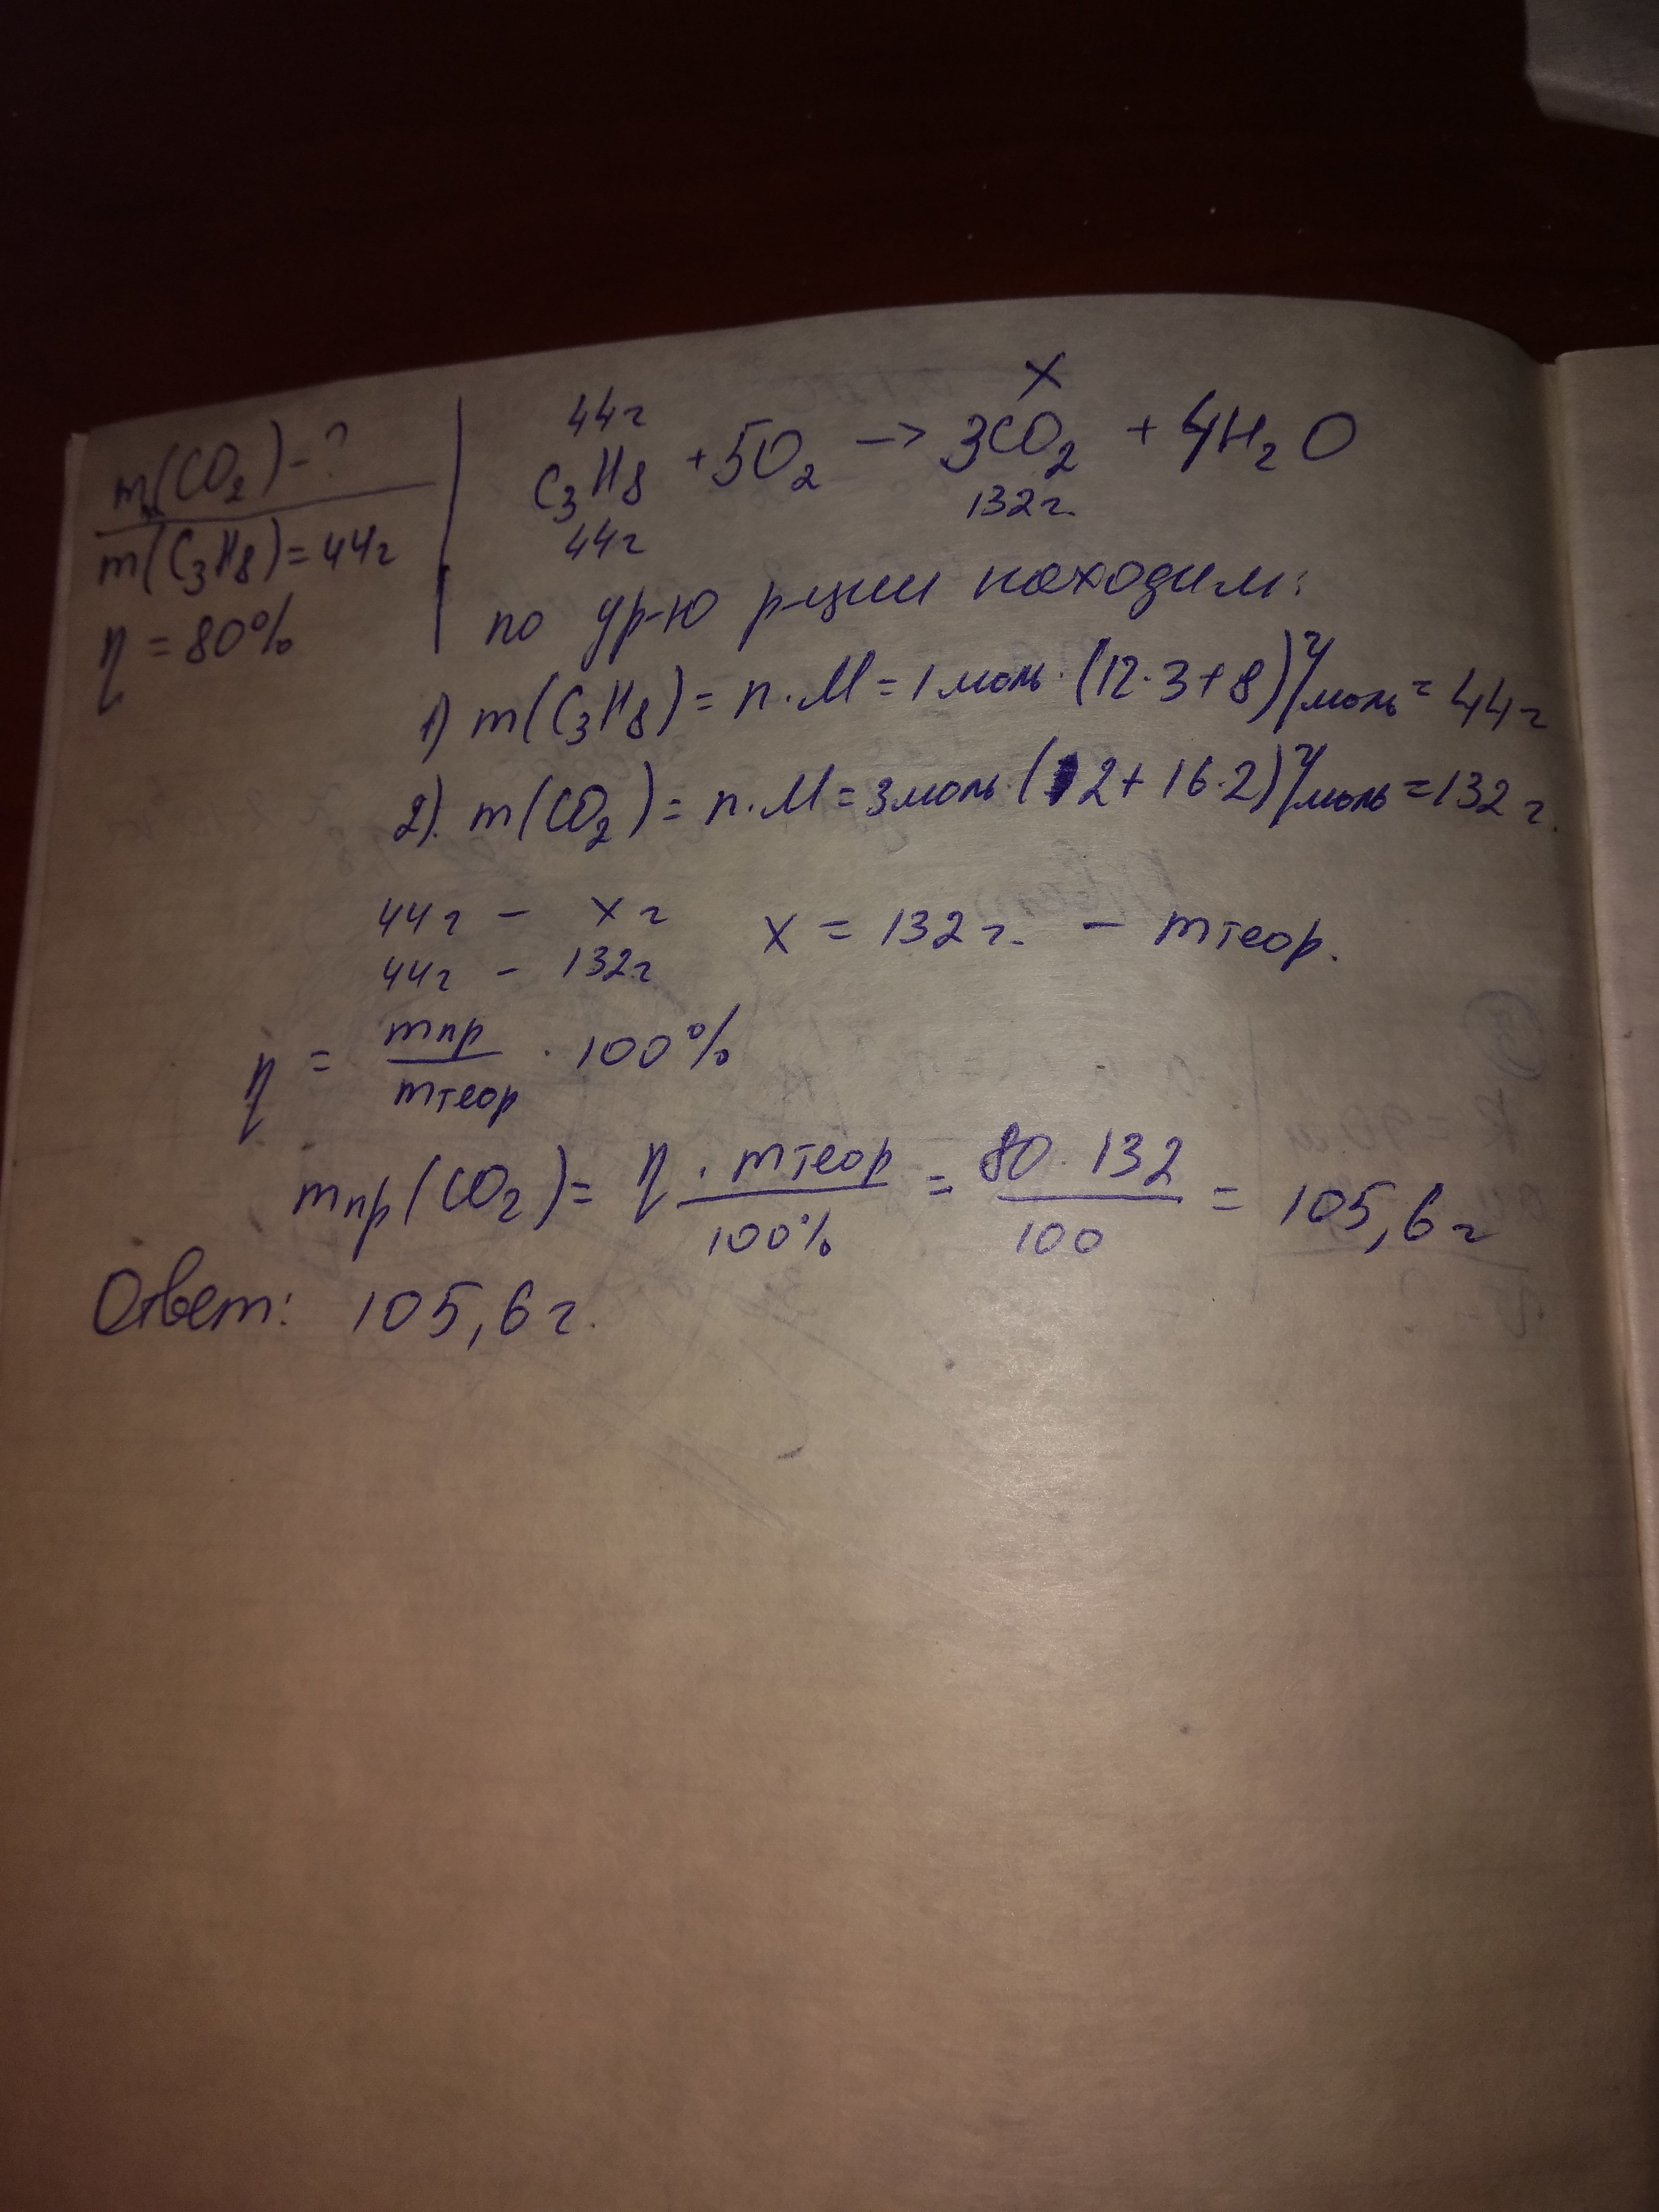 m(CO₂) - ?
m(C₃H₈) = 44г
η = 80%
44г x
C₃H₈ + 5O₂ → 3CO₂ + 4H₂O
44г 132г.
по ур-ю р-ции находим:
1) m(C₃H₈) = n · M = 1 моль · (12 · 3 + 8) г/моль = 44г
2). m(CO₂) = n · M = 3 моль · (12 + 16 · 2) г/моль = 132 г.
44г - x г x = 132 г. - mтеор.
44г - 132г
η = mпр / mтеор · 100%
mпр(CO₂) = η · mтеор / 100% = 80 · 132 / 100 = 105,6 г
Ответ: 105,6 г.